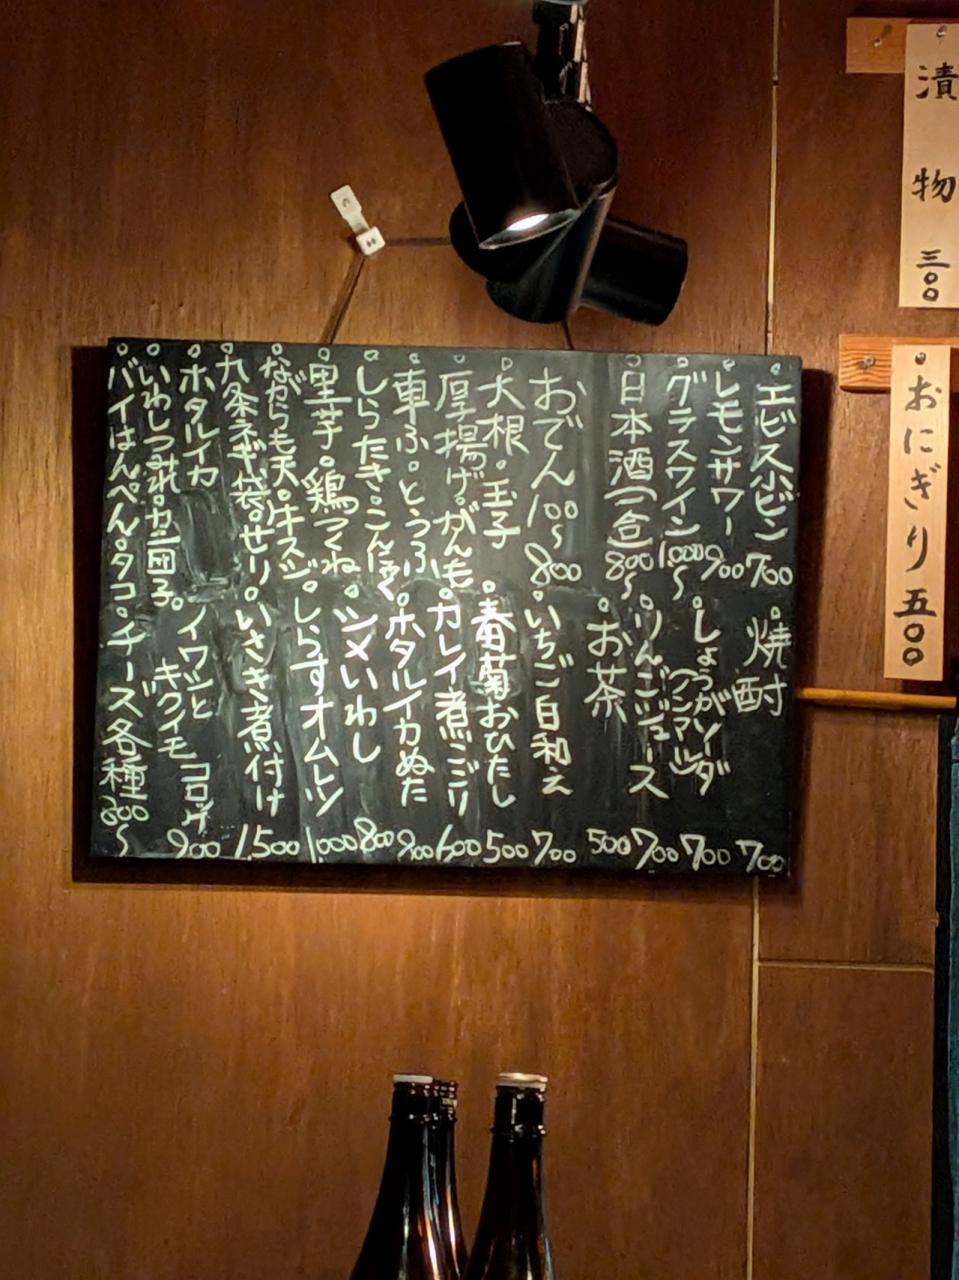 漬物 三〇〇
おにぎり 五〇〇
エビス小ビン 700
レモンサワー 900
グラスワイン 1000~
日本酒(一合) 800~
おでん 100~800
大根。玉子
厚揚げ。がんも
車ふ。とうふ
しらたき。こんにゃく
里芋。鶏つくね
ながらも天。牛スジ
九条ネギ袋。せり
ホタルイカ
いわしつみれ。カニ団子
バイ。はんぺん。タコ
焼酎 700
しょうがソーダ 700
りんごジュース 700
お茶 500
いちご白和え 700
春菊おひたし 500
カレイ煮こごり 600
ホタルイカぬた 900
シメいわし 800
しらすオムレツ 1000
いさき煮付け 1500
イワシとキクイモコロッケ 900
チーズ各種 800~